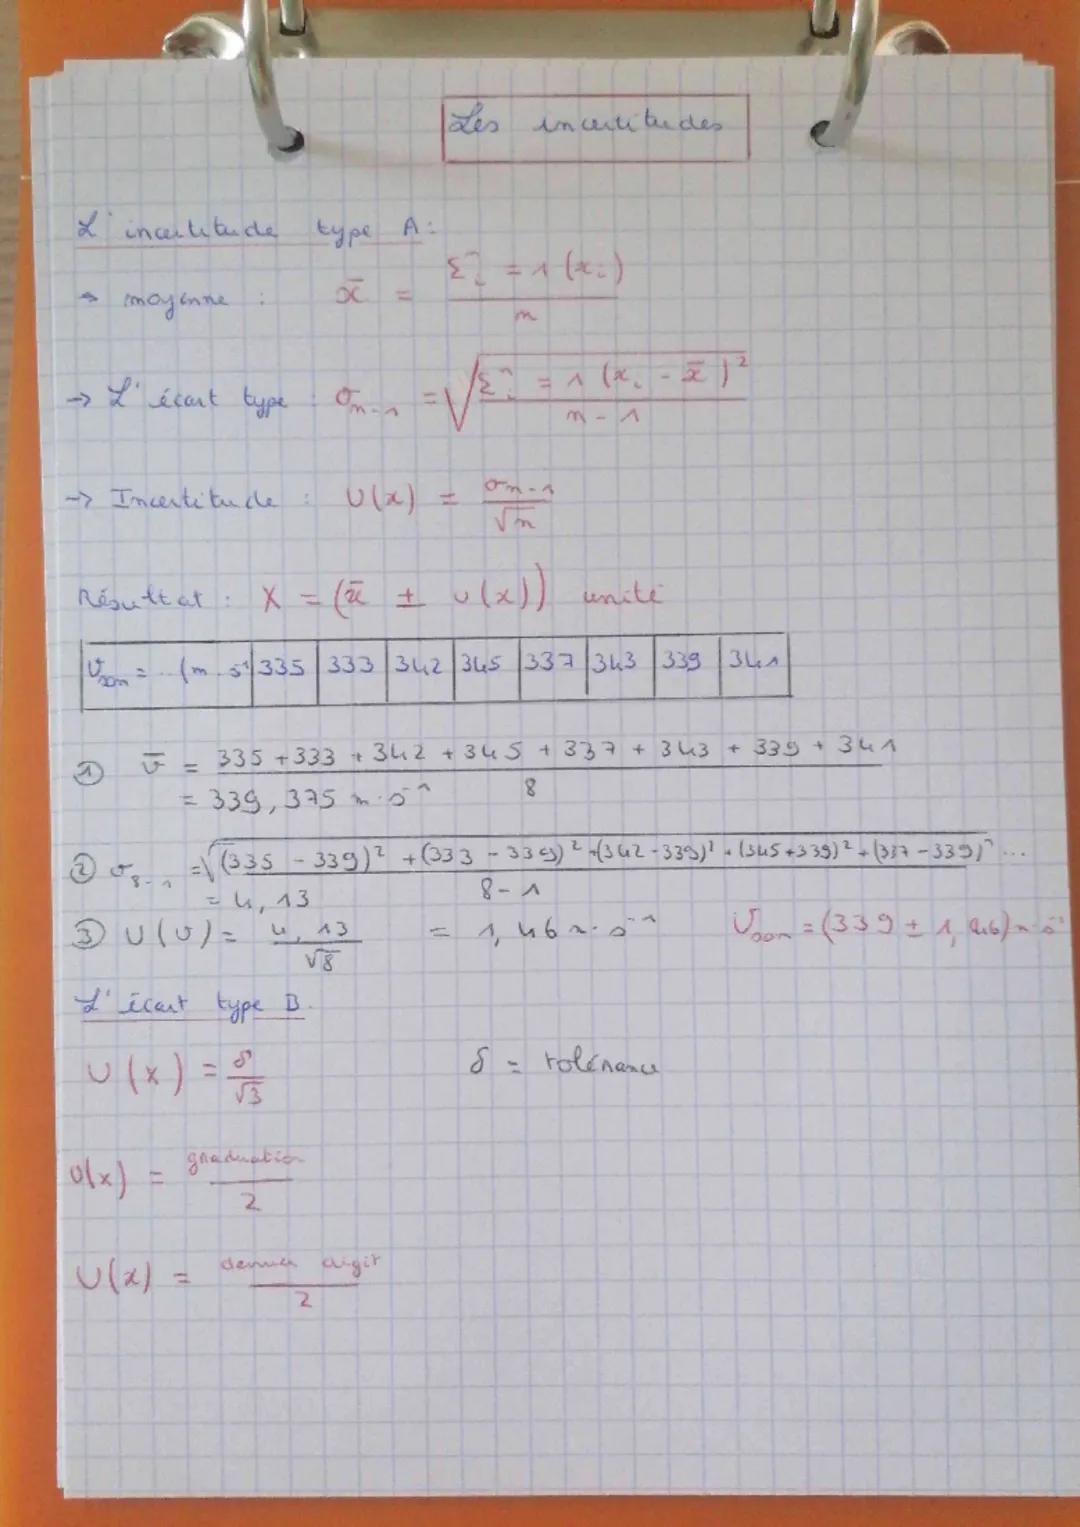 Les incertitudes
L'incertitude type A :
→ moyenne : x̄ = Σⁿᵢ = 1 (xᵢ) / n
→ L'écart type : σn-1 = √(Σⁿᵢ = 1 (xᵢ - x̄)² / n - 1)
→ Incertitude : U(x) = σn-1 / √n
Résultat : X = (x̄ ± U(x)) unité
Vson = .. (m.s⁻¹ 335 333 342 345 337 343 339 341
① v̄ = 335 + 333 + 342 + 345 + 337 + 343 + 339 + 341 / 8
= 339,375 m.s⁻¹
② σ8-1 = √((335 - 339)² + (333 - 339)² + (342 - 339)² + (345 + 339)² + (337 - 339)² ... / 8 - 1)
= 4,13
③ U(v) = 4,13 / √8 = 1,46 m.s⁻¹ Vson = (339 ± 1,46) m.s⁻¹
L'écart type B.
U(x) = δ / √3 δ = tolérance
U(x) = graduation / 2
U(x) = dernier digit / 2